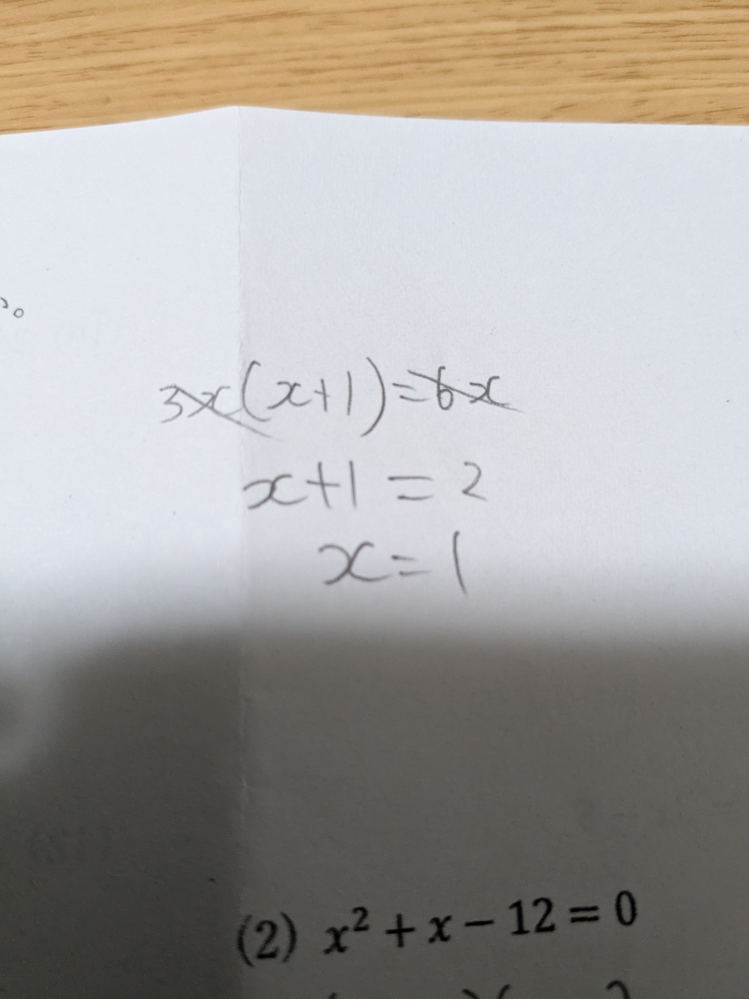 3x(x+1)=6x
x+1=2
x=1
(2) x² + x − 12 = 0